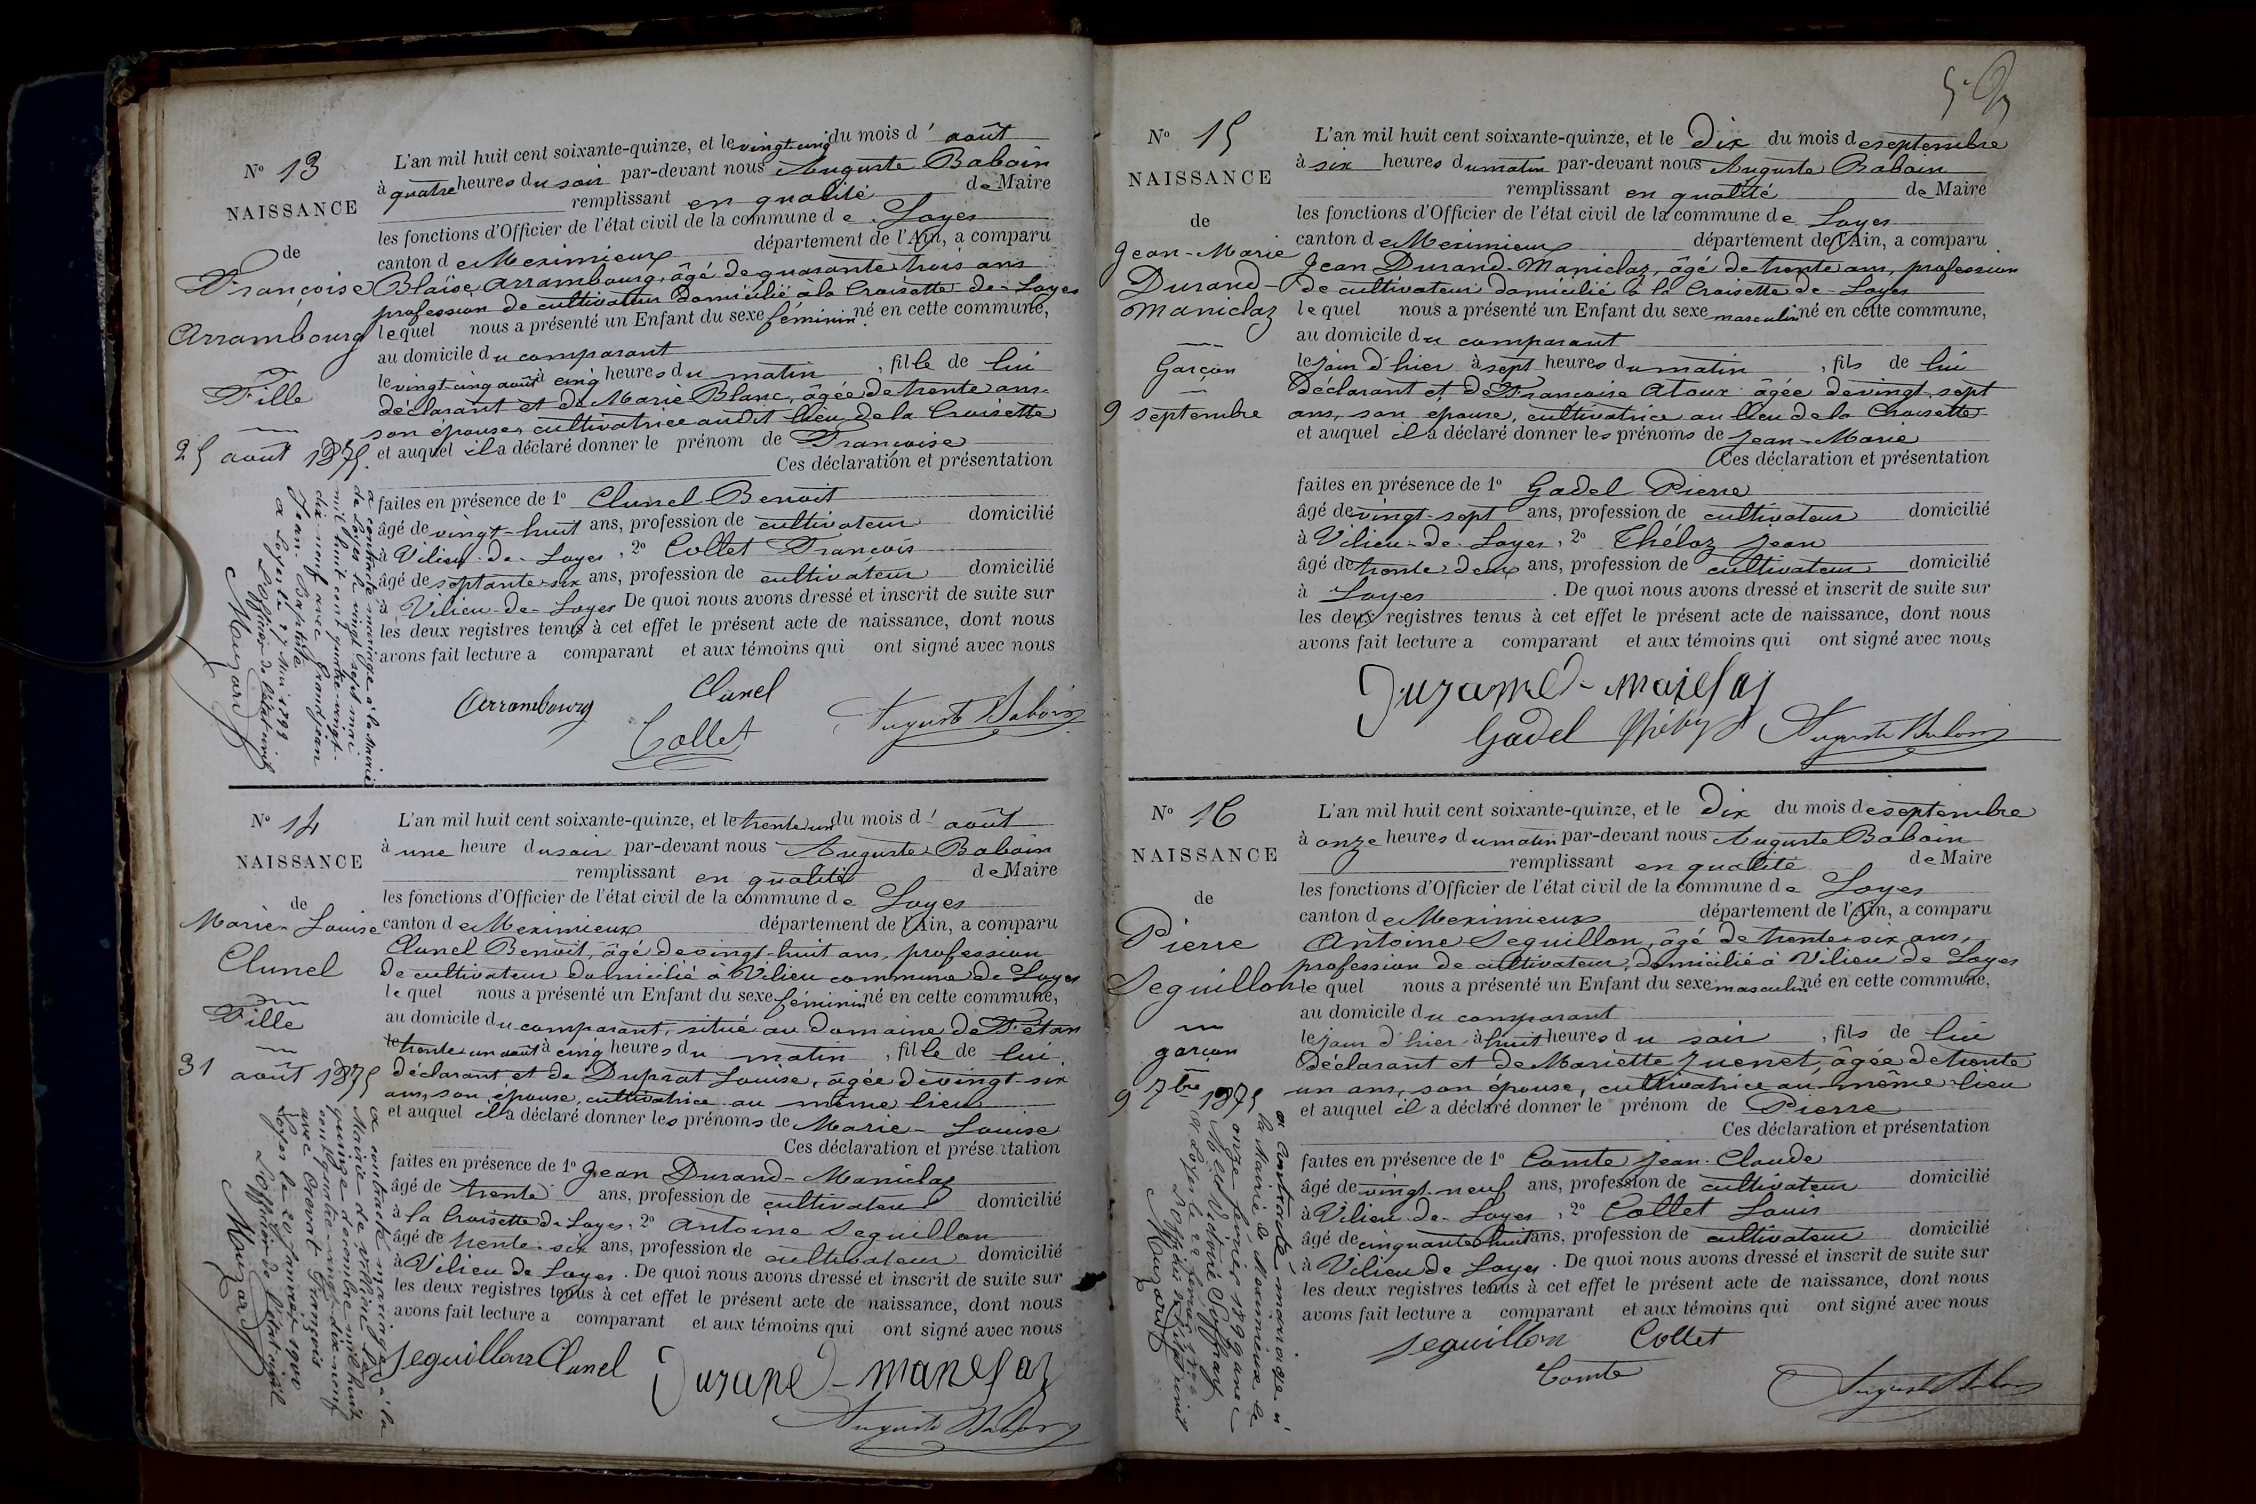 Nº 13
NAISSANCE
de
Françoise
Arrambourg
Fille
25 août 1875.
L'an mil huit cent soixante-quinze, et le vingt cinq du mois d' août
à quatre heures du soir par-devant nous Auguste Baboin
remplissant en qualité de Maire
les fonctions d'Officier de l'état civil de la commune de Loyes
canton de Meximieux département de l'Ain, a comparu
Blaise Arrambourg, âgé de quarante trois ans
profession de cultivateur domicilié à la Croisette de-Loyes
lequel nous a présenté un Enfant du sexe féminin né en cette commune,
au domicile du comparant
le vingt cinq août à cinq heures du matin, fille de lui
déclarant et de Marie Blanc, âgée de trente ans
son épouse, cultivatrice audit lieu de la Croisette
et auquel il a déclaré donner le prénom de Françoise
Ces déclaration et présentation
faites en présence de 1º Clunel Benoit
âgé de vingt-huit ans, profession de cultivateur domicilié
à Vilieu-de-Loyes, 2º Collet François
âgé de septante-six ans, profession de cultivateur domicilié
à Vilieu-de-Loyes De quoi nous avons dressé et inscrit de suite sur
les deux registres tenus à cet effet le présent acte de naissance, dont nous
avons fait lecture a comparant et aux témoins qui ont signé avec nous
Arrambourg Clunel
Collet Auguste Baboin
a contracté mariage à la Mairie
de Loyes le vingt sept mai
mil huit cent quatre-vingt-
dix-neuf avec Grandjean
Jean Baptiste
à Loyes le 27 Mai 1899
L'Officier de l'état civil
Nº 14
NAISSANCE
de
Marie-Louise
Clunel
Fille
31 août 1875
L'an mil huit cent soixante-quinze, et le trente un du mois d' août
à une heure du soir par-devant nous Auguste Baboin
remplissant en qualité de Maire
les fonctions d'Officier de l'état civil de la commune de Loyes
canton de Meximieux département de l'Ain, a comparu
Clunel Benoit, âgé de vingt-huit ans, profession
de cultivateur domicilié à Vilieu commune de Loyes
lequel nous a présenté un Enfant du sexe féminin né en cette commune,
au domicile du comparant, situé au domaine de
le trente un août à cinq heures du matin, fille de lui
déclarant et de Duprat Louise, âgée de vingt-six
ans, son épouse, cultivatrice au même lieu
et auquel il a déclaré donner les prénoms de Marie-Louise
Ces déclaration et présentation
faites en présence de 1º Jean Durand-Maniclaz
âgé de trente ans, profession de cultivateur domicilié
à la Croisette de Loyes, 2º Antoine Seguillon
âgé de trente-six ans, profession de cultivateur domicilié
à Vilieu de Loyes. De quoi nous avons dressé et inscrit de suite sur
les deux registres tenus à cet effet le présent acte de naissance, dont nous
avons fait lecture a comparant et aux témoins qui ont signé avec nous
Seguillon Clunel Durand-
Auguste Baboin
a contracté mariage à la
Mairie de Villieu le
quinze décembre mil huit
cent quatre-vingt-dix-neuf
avec François
Loyes le 20 Janvier 1900
L'officier de l'état civil
Nº 15
NAISSANCE
de
Jean-Marie
Durand-
Maniclaz
Garçon
9 septembre
L'an mil huit cent soixante-quinze, et le Dix du mois de septembre
à six heures du matin par-devant nous Auguste Baboin
remplissant en qualité de Maire
les fonctions d'Officier de l'état civil de la commune de Loyes
canton de Meximieux département de l'Ain, a comparu
Jean Durand-Maniclaz, âgé de trente ans, profession
de cultivateur domicilié à la Croisette de-Loyes
lequel nous a présenté un Enfant du sexe masculin né en cette commune,
au domicile du comparant
le jour d'hier à sept heures du matin, fils de lui
Déclarant et de Françoise Atoux âgée de vingt-sept
ans, son épouse, cultivatrice au lieu de la Croisette
et auquel il a déclaré donner les prénoms de Jean-Marie
Ces déclaration et présentation
faites en présence de 1º Gadel Pierre
âgé de vingt-sept ans, profession de cultivateur domicilié
à Vilieu-de-Loyes, 2º Théloz Jean
âgé de trente-deux ans, profession de cultivateur domicilié
à Loyes. De quoi nous avons dressé et inscrit de suite sur
les deux registres tenus à cet effet le présent acte de naissance, dont nous
avons fait lecture a comparant et aux témoins qui ont signé avec nous
Gadel Auguste Baboin
Nº 16
NAISSANCE
de
Pierre
Seguillon
garçon
9 7bre 1875
L'an mil huit cent soixante-quinze, et le Dix du mois de septembre
à onze heures du matin par-devant nous Auguste Baboin
remplissant en qualité de Maire
les fonctions d'Officier de l'état civil de la commune de Loyes
canton de Meximieux département de l'Ain, a comparu
Antoine Seguillon, âgé de trente-six ans,
profession de cultivateur, domicilié à Vilieu de Loyes
lequel nous a présenté un Enfant du sexe masculin né en cette commune,
au domicile du comparant
le jour d'hier à huit heures du soir, fils de lui
Déclarant et de Mariette Juenet, âgée de trente
un ans, son épouse, cultivatrice au même lieu
et auquel il a déclaré donner le prénom de Pierre
Ces déclaration et présentation
faites en présence de 1º Comte Jean-Claude
âgé de vingt-neuf ans, profession de cultivateur domicilié
à Vilieu-de-Loyes, 2º Collet Louis
âgé de cinquante huit ans, profession de cultivateur domicilié
à Vilieu de Loyes. De quoi nous avons dressé et inscrit de suite sur
les deux registres tenus à cet effet le présent acte de naissance, dont nous
avons fait lecture a comparant et aux témoins qui ont signé avec nous
Seguillon Collet
Comte
Auguste Baboin
a contracté mariage à
la Mairie de Meximieux le
onze février 1899 avec
Victorie
à Loyes le 22 février
L'officier de l'état civil